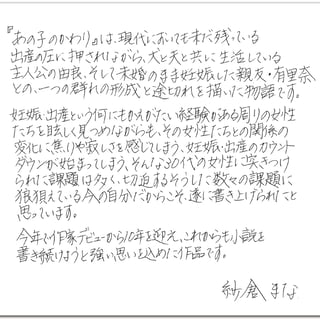 『あの子のかわり』は、現代においても未だ残っている
出産の圧に押されながら、犬と夫と共に生活している
主人公の由良、そして未婚のまま妊娠した親友・有里奈
との、一つの群れの形成と途切れを描いた物語です。
妊娠、出産という何にもかえがたい経験がある周りの女性
たちを眩しく見つめながらも、その女性たちとの関係の
変化に焦りや寂しさを感じてしまう、妊娠、出産のカウント
ダウンが始まってしまう、そんな30代の女性に突きつけ
られた課題は多く、切迫するそうした数々の課題に
狼狽えている今の自分だからこそ、遂に書き上げられたと
思っています。
今年で作家デビューから10年を迎え、これからも小説を
書き続けようと強い思いを込めた作品です。
紗倉まな